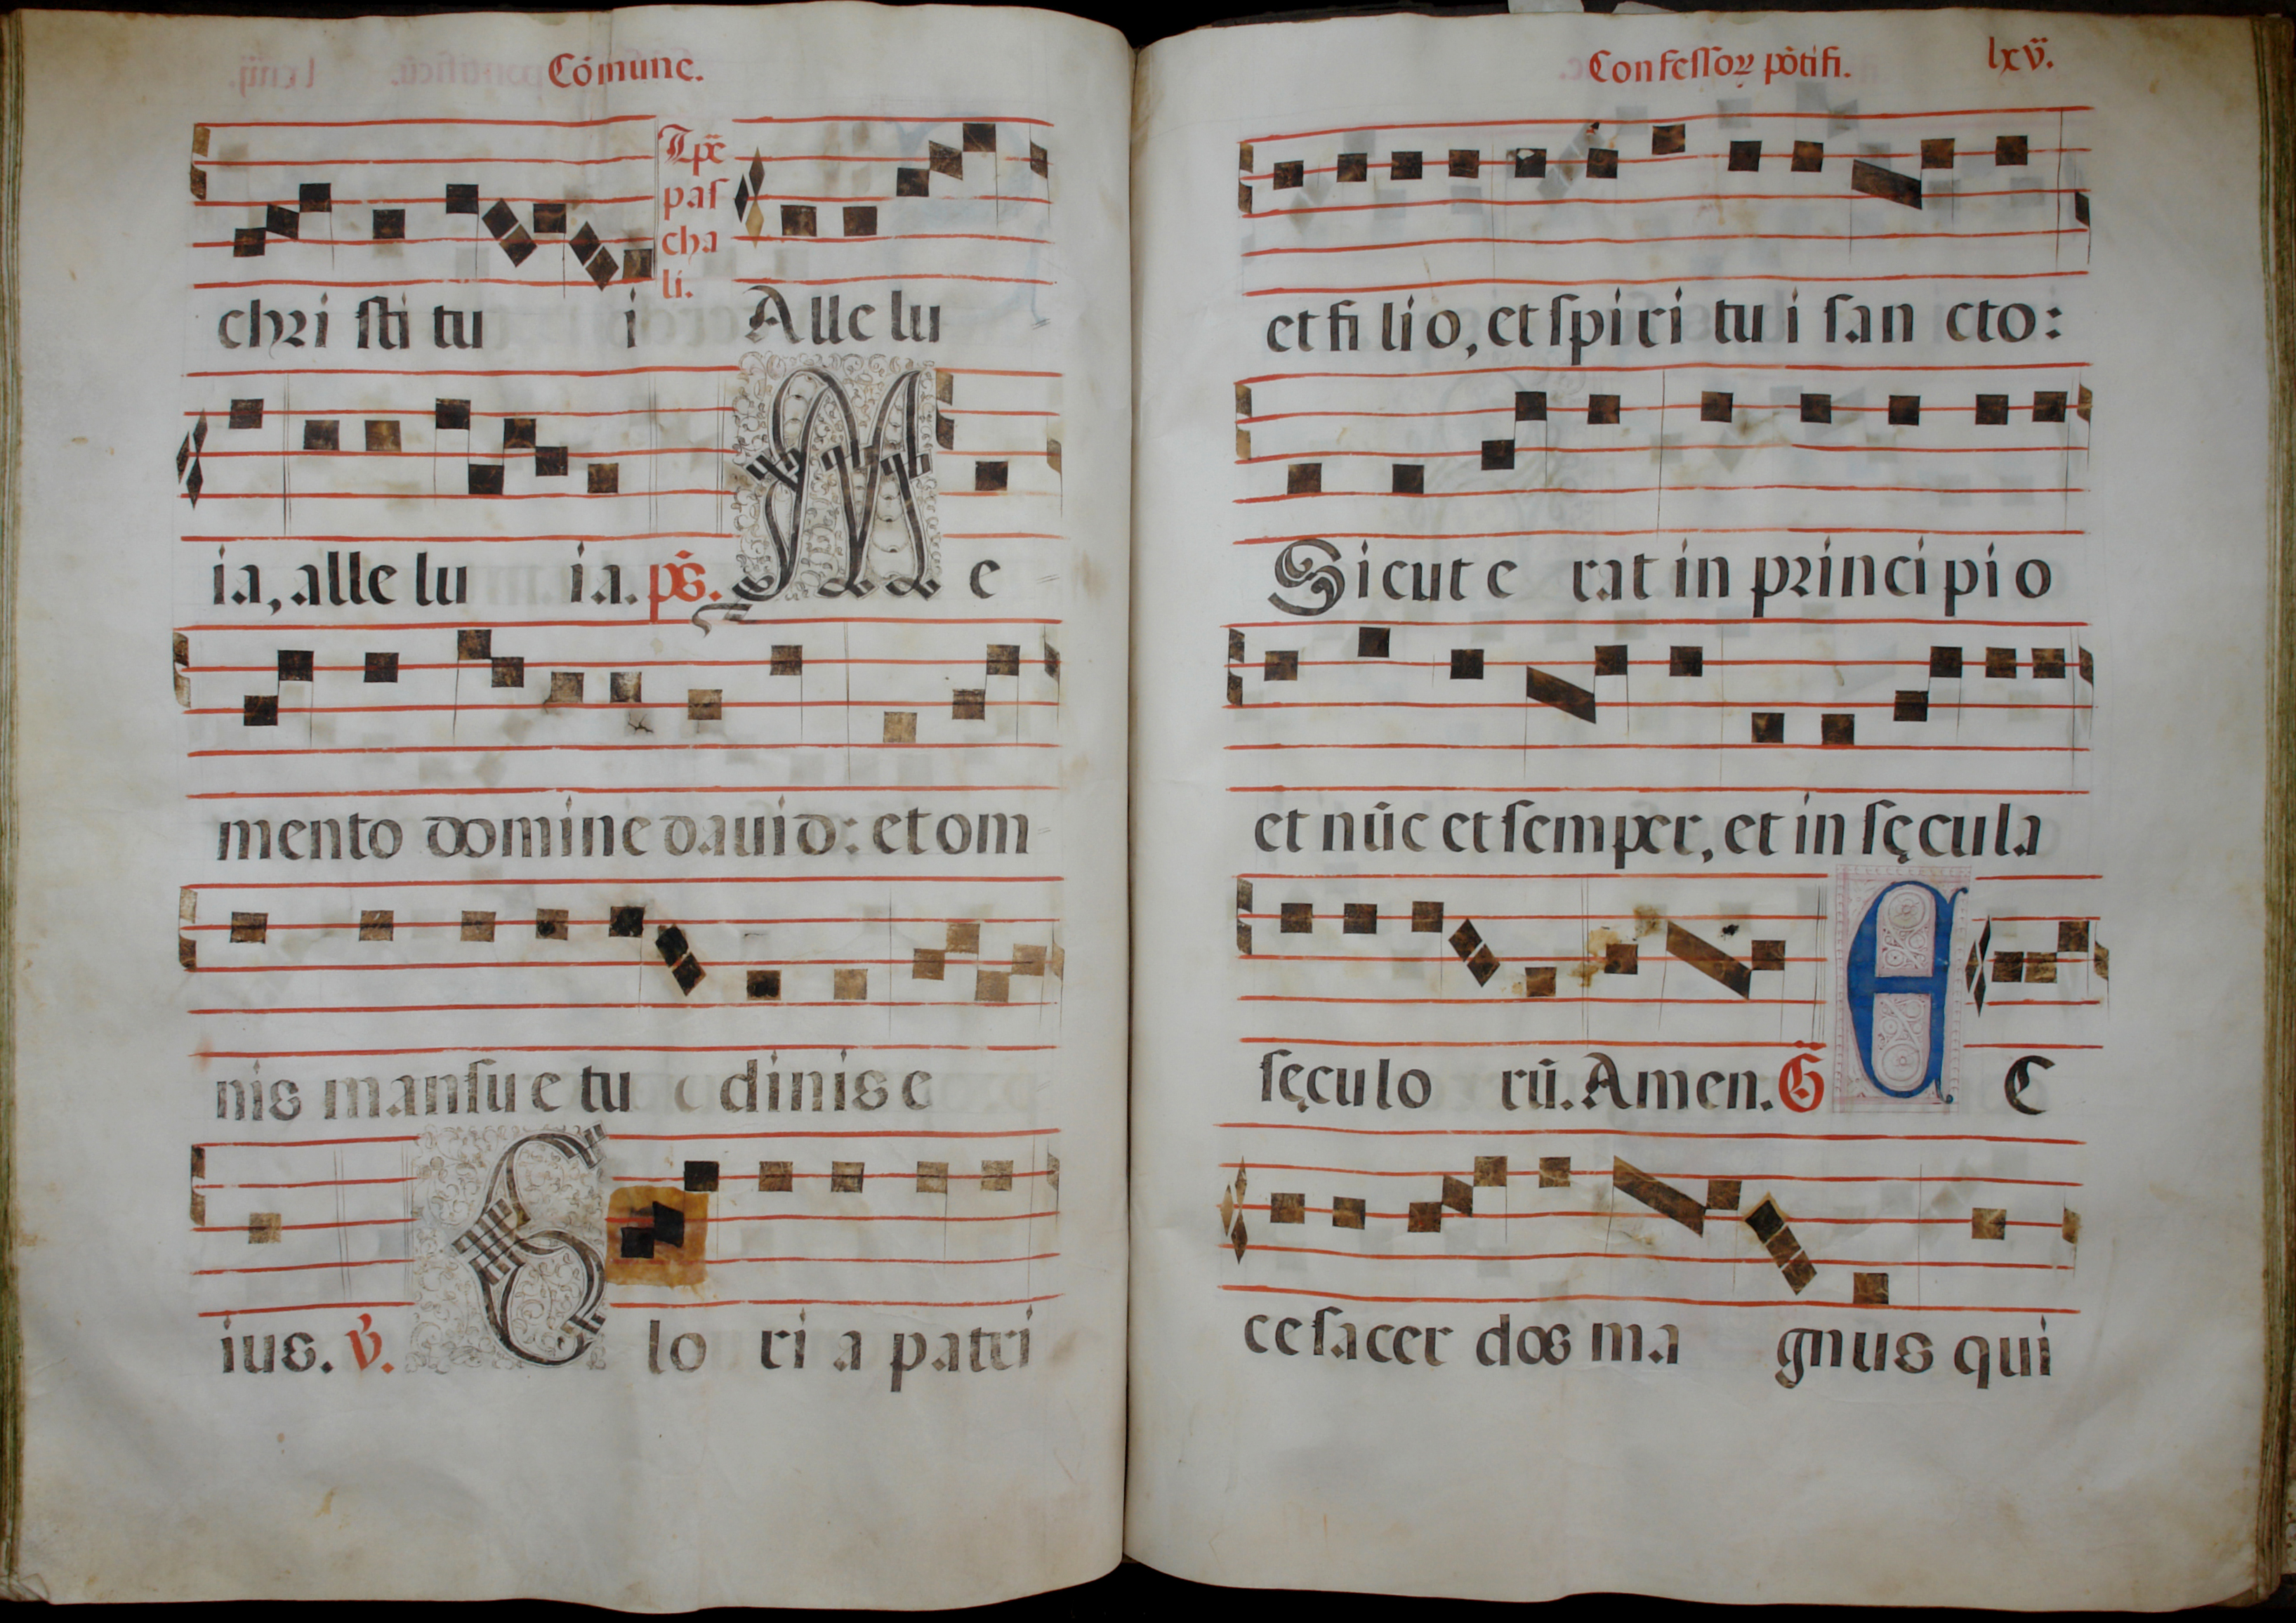 Cómune.
Tꝑe
paſ
cha
li.
chꝛi ſti tu i Alle lu
ia, alle lu ia. ps̄. M e
mento domine dauid: et om
nis manſu e tu dinis e
ius. ℣. G lo ri a patri
Confeſſoꝝ põtifi. lxv.
et fi lio, et ſpiri tu i ſan cto:
Sicut e rat in pꝛinci pi o
et nūc et ſemper, et in ſęcula
ſęculo rū. Amen. G̃ E C
ce ſacer dos ma gnus qui